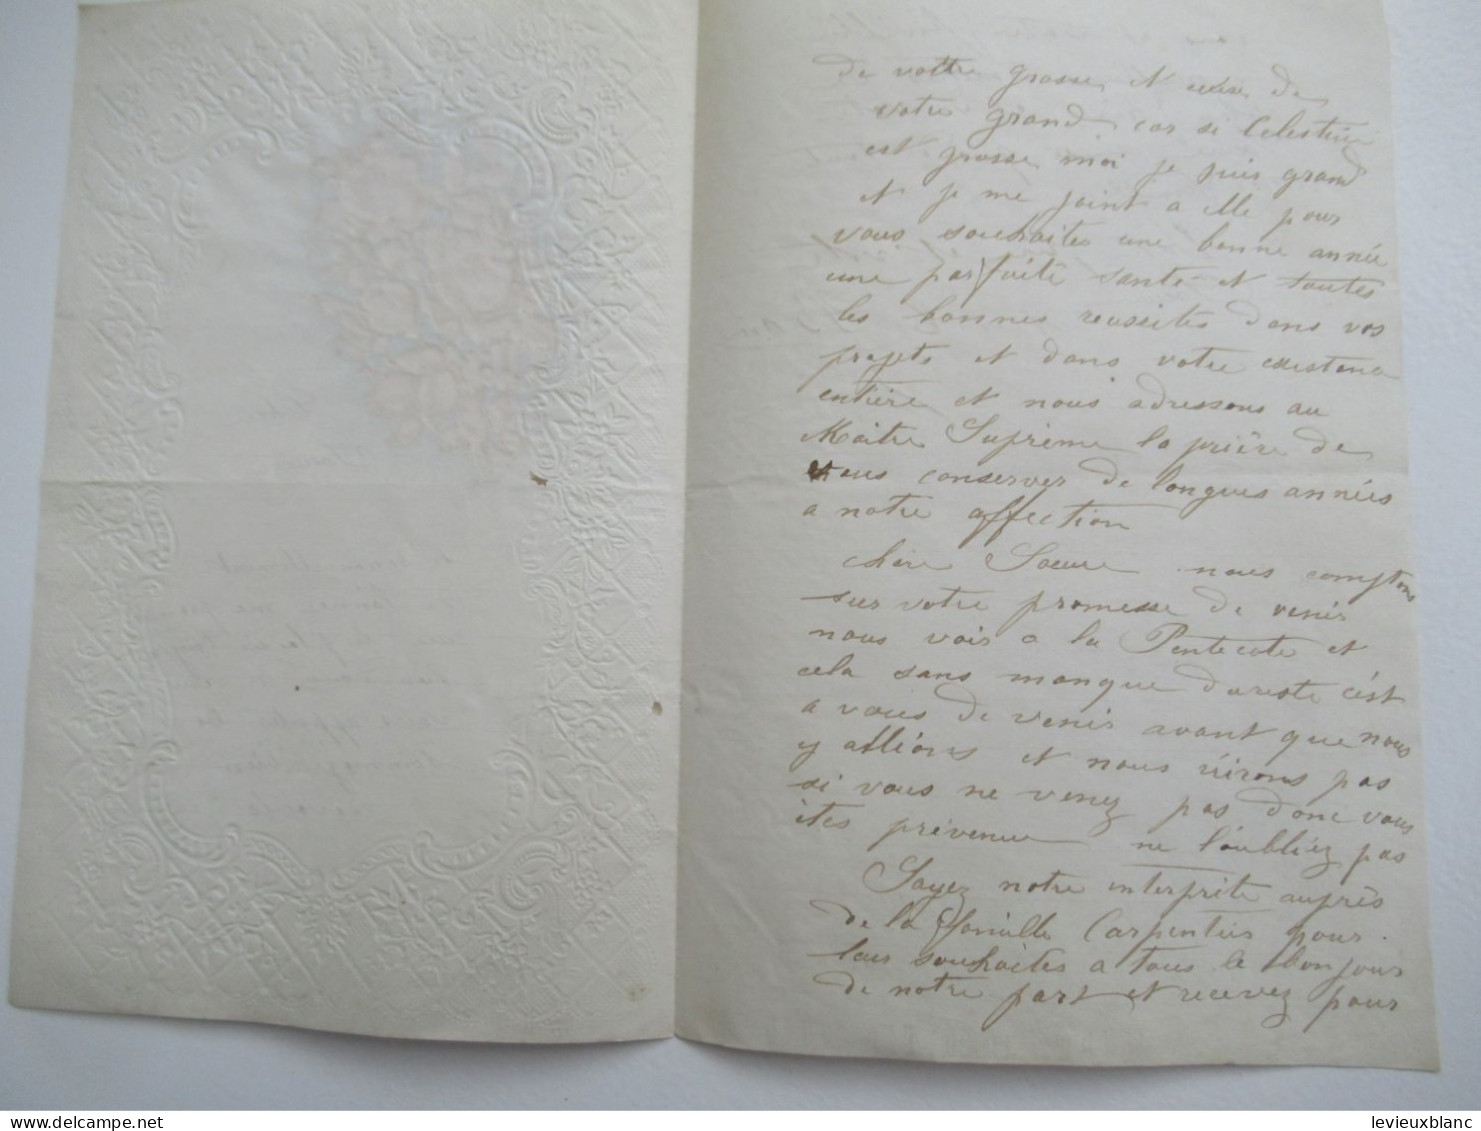 de vottre grosse et celui de
votre grand, car si Celestine
est grosse moi je suis grand
et je me joint a elle pour
vous souhaiter une bonne année
une parfaite santé et toutes
les bonnes réussites dans vos
projets et dans votre existence
entière et nous adressons au
Maître Suprème la prière de
vous conserver de longues années
a notre affection
Chère Soeur nous comptons
sur votre promesse de venir
nous voir a la Pentecote et
cela sans manque dureste c'est
a vous de venir avant que nous
y allions et nous n'irons pas
si vous ne venez pas donc vous
êtes prévenue ne l'oubliez pas
Soyez notre interprête auprès
de la famille Carpentier pour
leur souhaiter a tous le bonjour
de notre part et recevez pour
levieuxblanc
delcampe.net